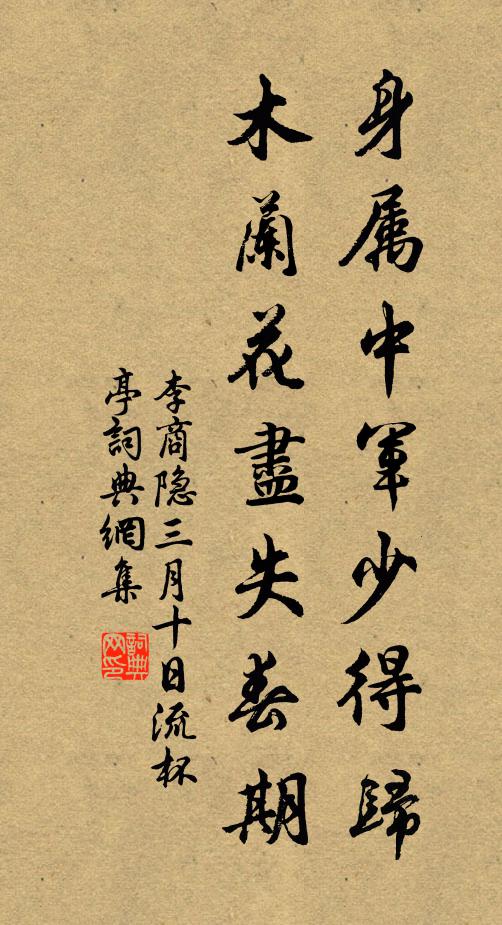 身属中軍少得歸
木蘭花盡失春期
李商隐三月十日流杯
亭詞典網集
詞典
网印